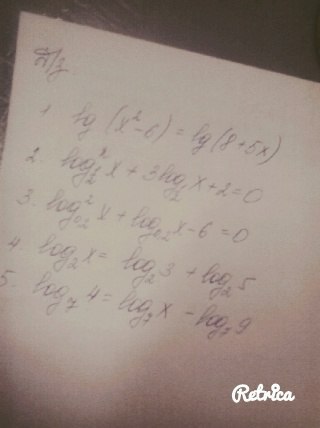 Д/з
1. lg (x² - 6) = lg (8+5x)
2. log₂² x + 3 log₂ x + 2 = 0
3. log²₀,₂ x + log₀,₂ x - 6 = 0
4. log₂ x = log₂ 3 + log₂ 5
5. log₇ 4 = log₇ x - log₇ 9
Retrica